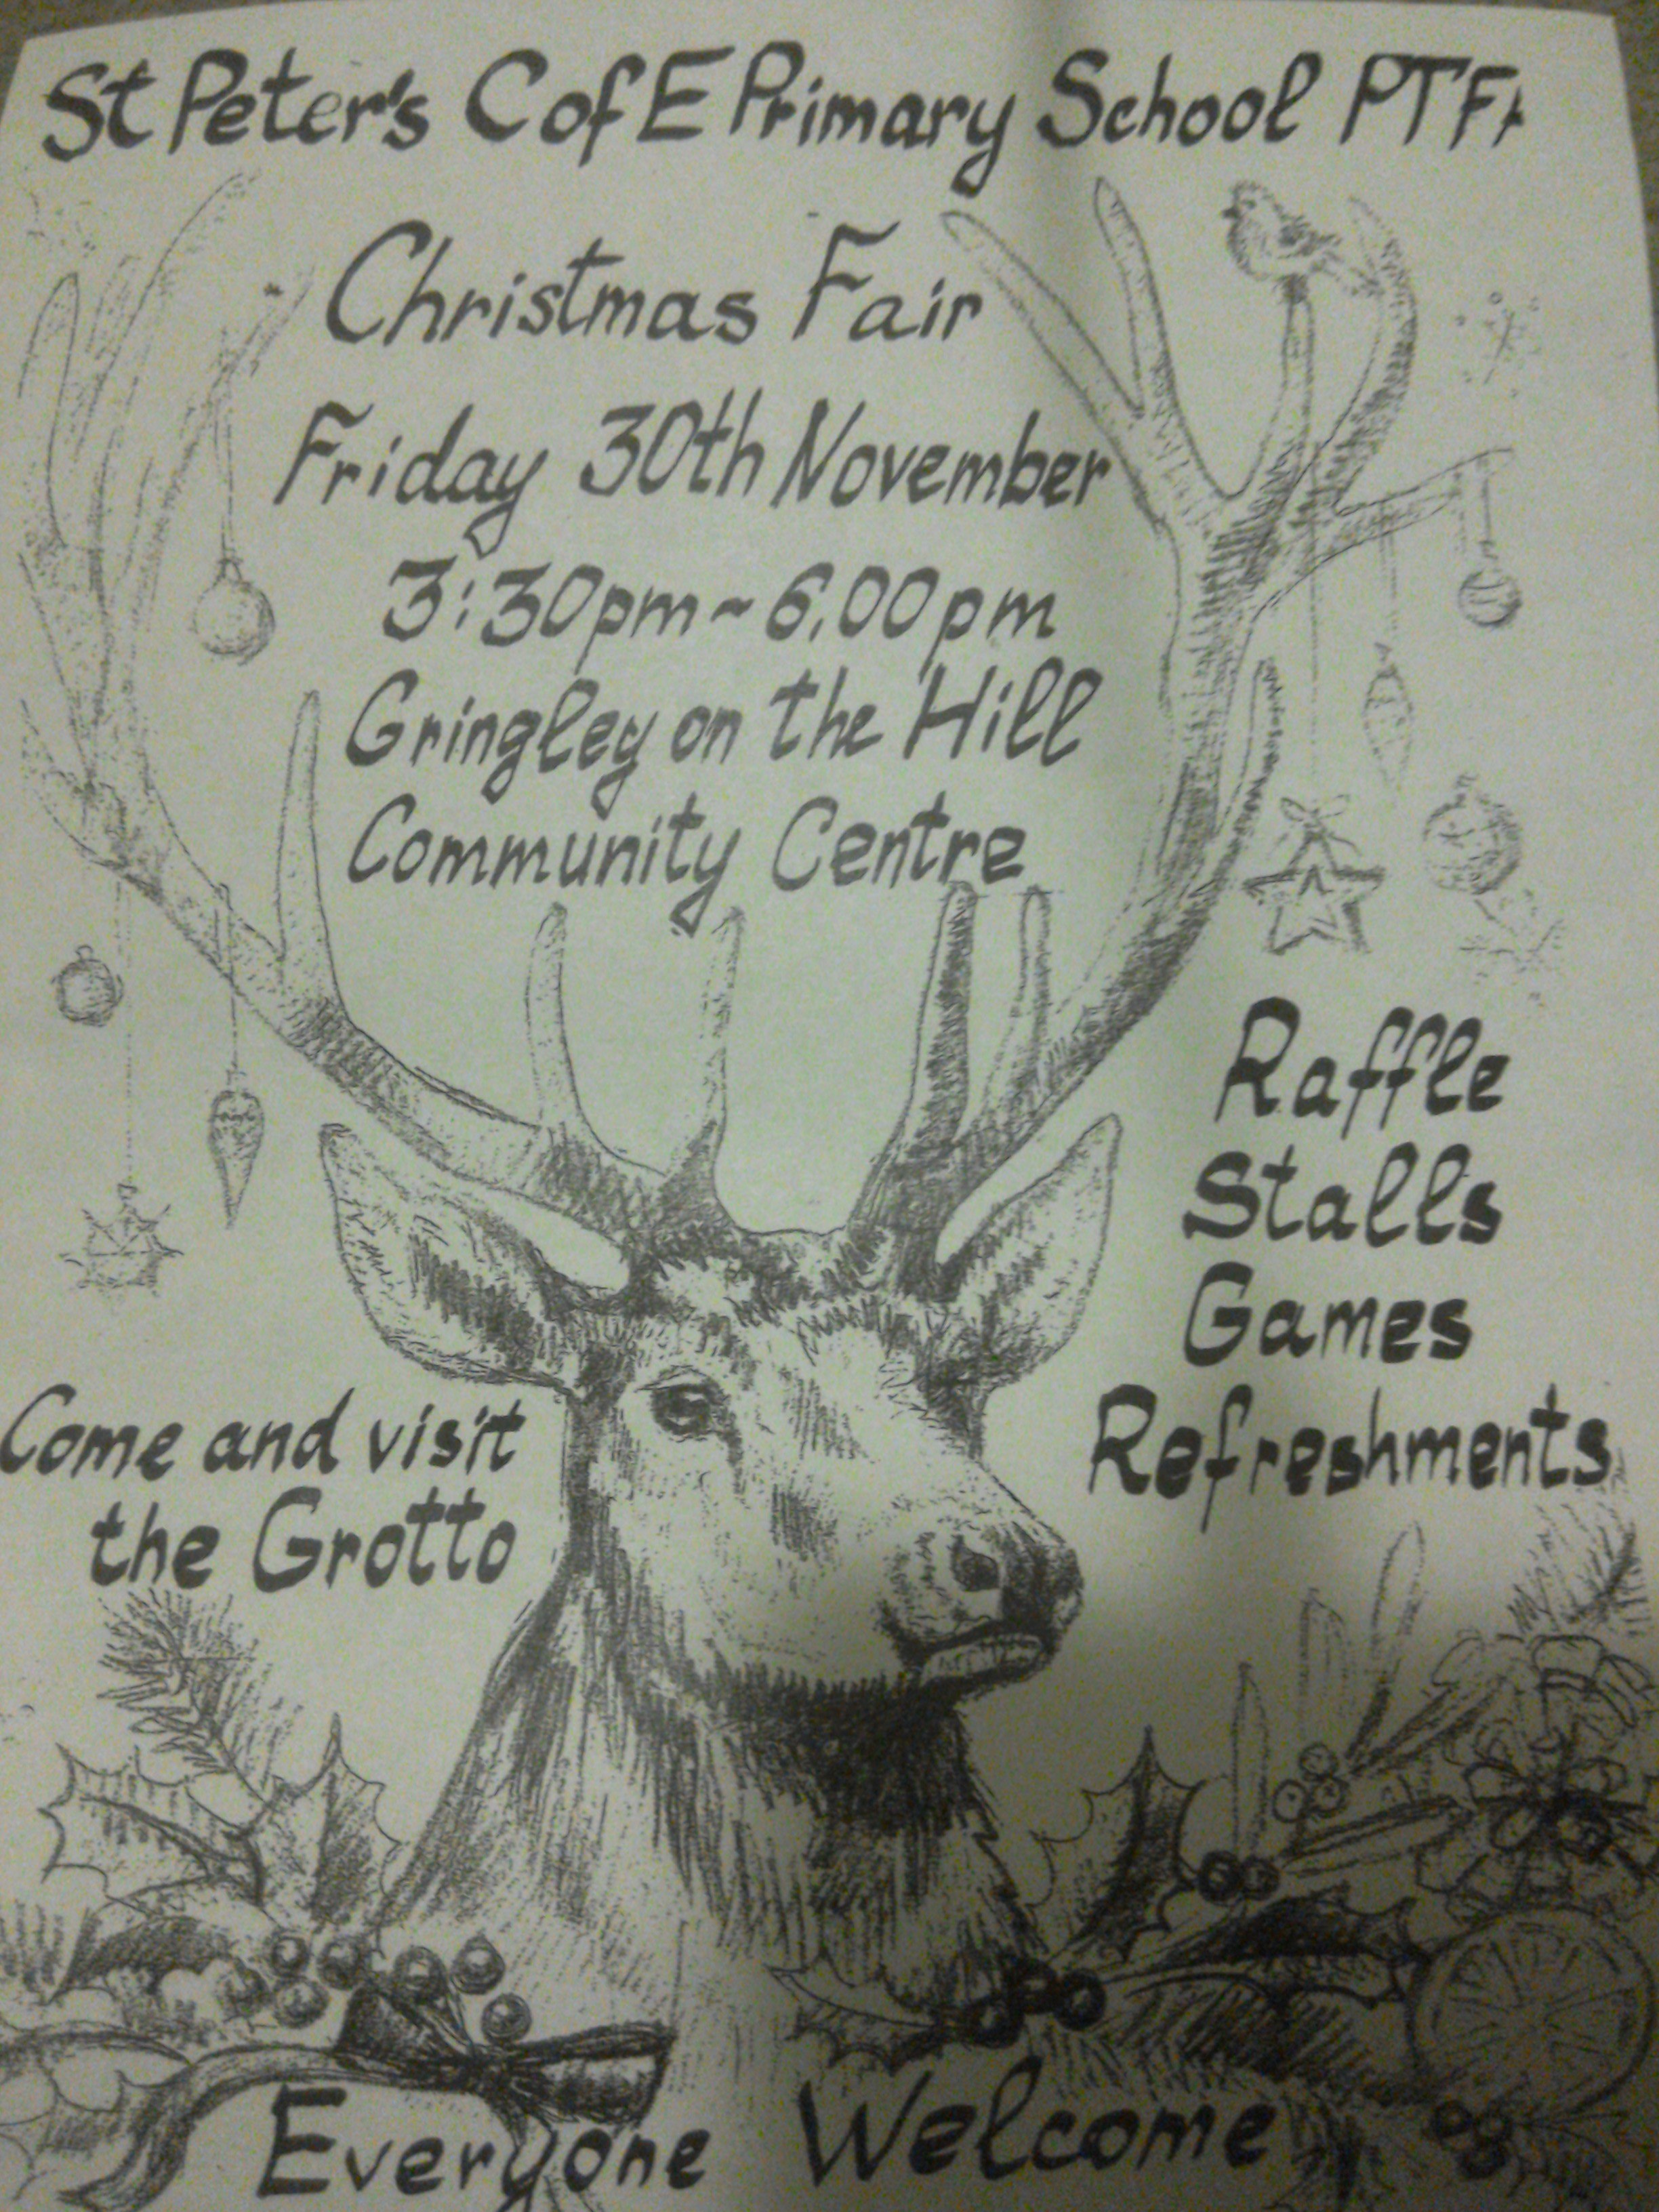 St Peter's C of E Primary School PTFA
Christmas Fair
Friday 30th November
3:30pm~6.00pm
Gringley on the Hill
Community Centre
Raffle
Stalls
Games
Refreshments
Come and visit
the Grotto
Everyone Welcome